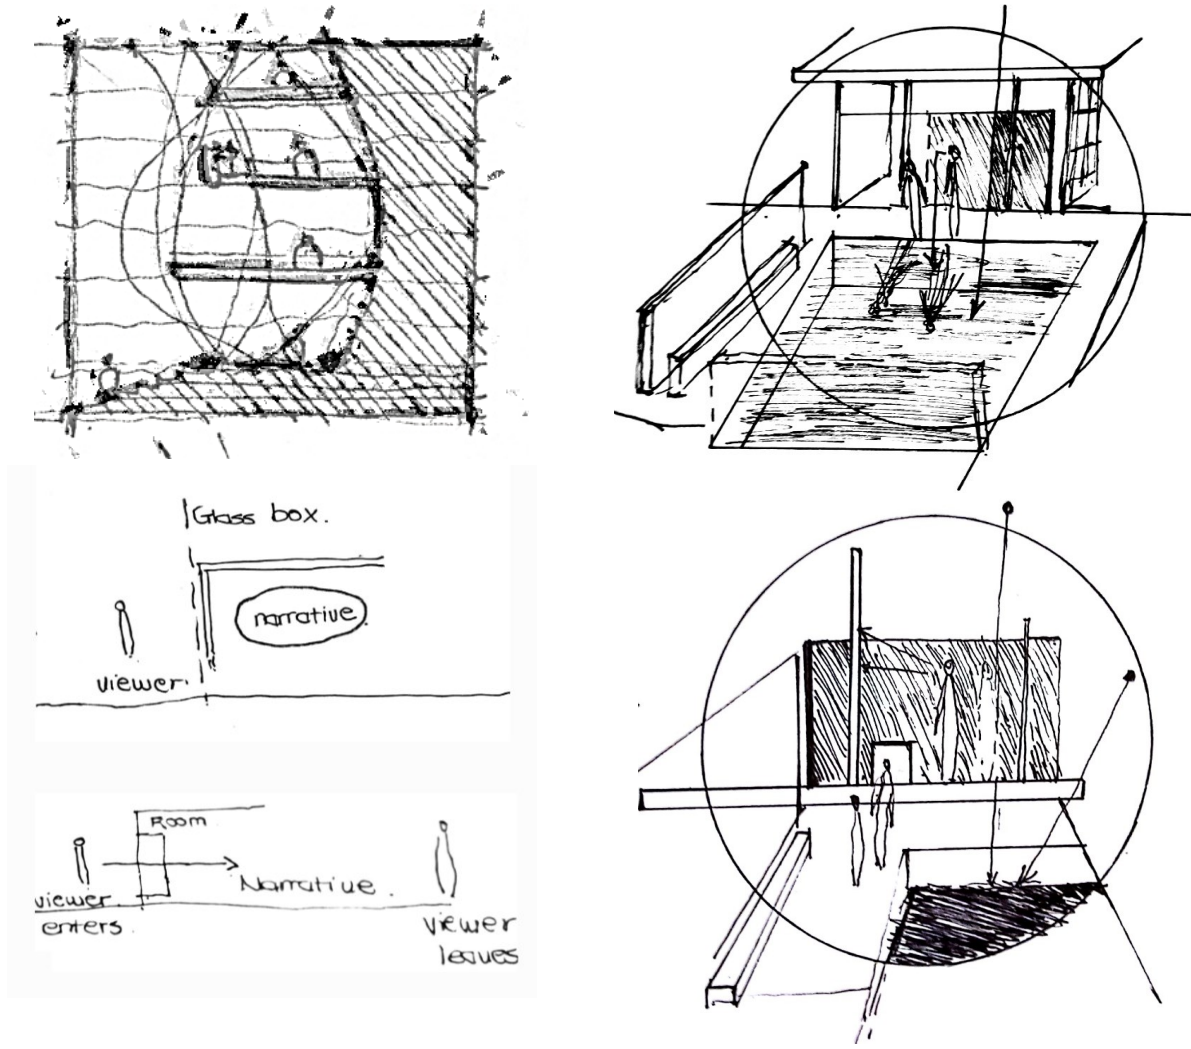 Glass box.
narrative
viewer.
Room
Narrative.
viewer
enters.
viewer
leaves